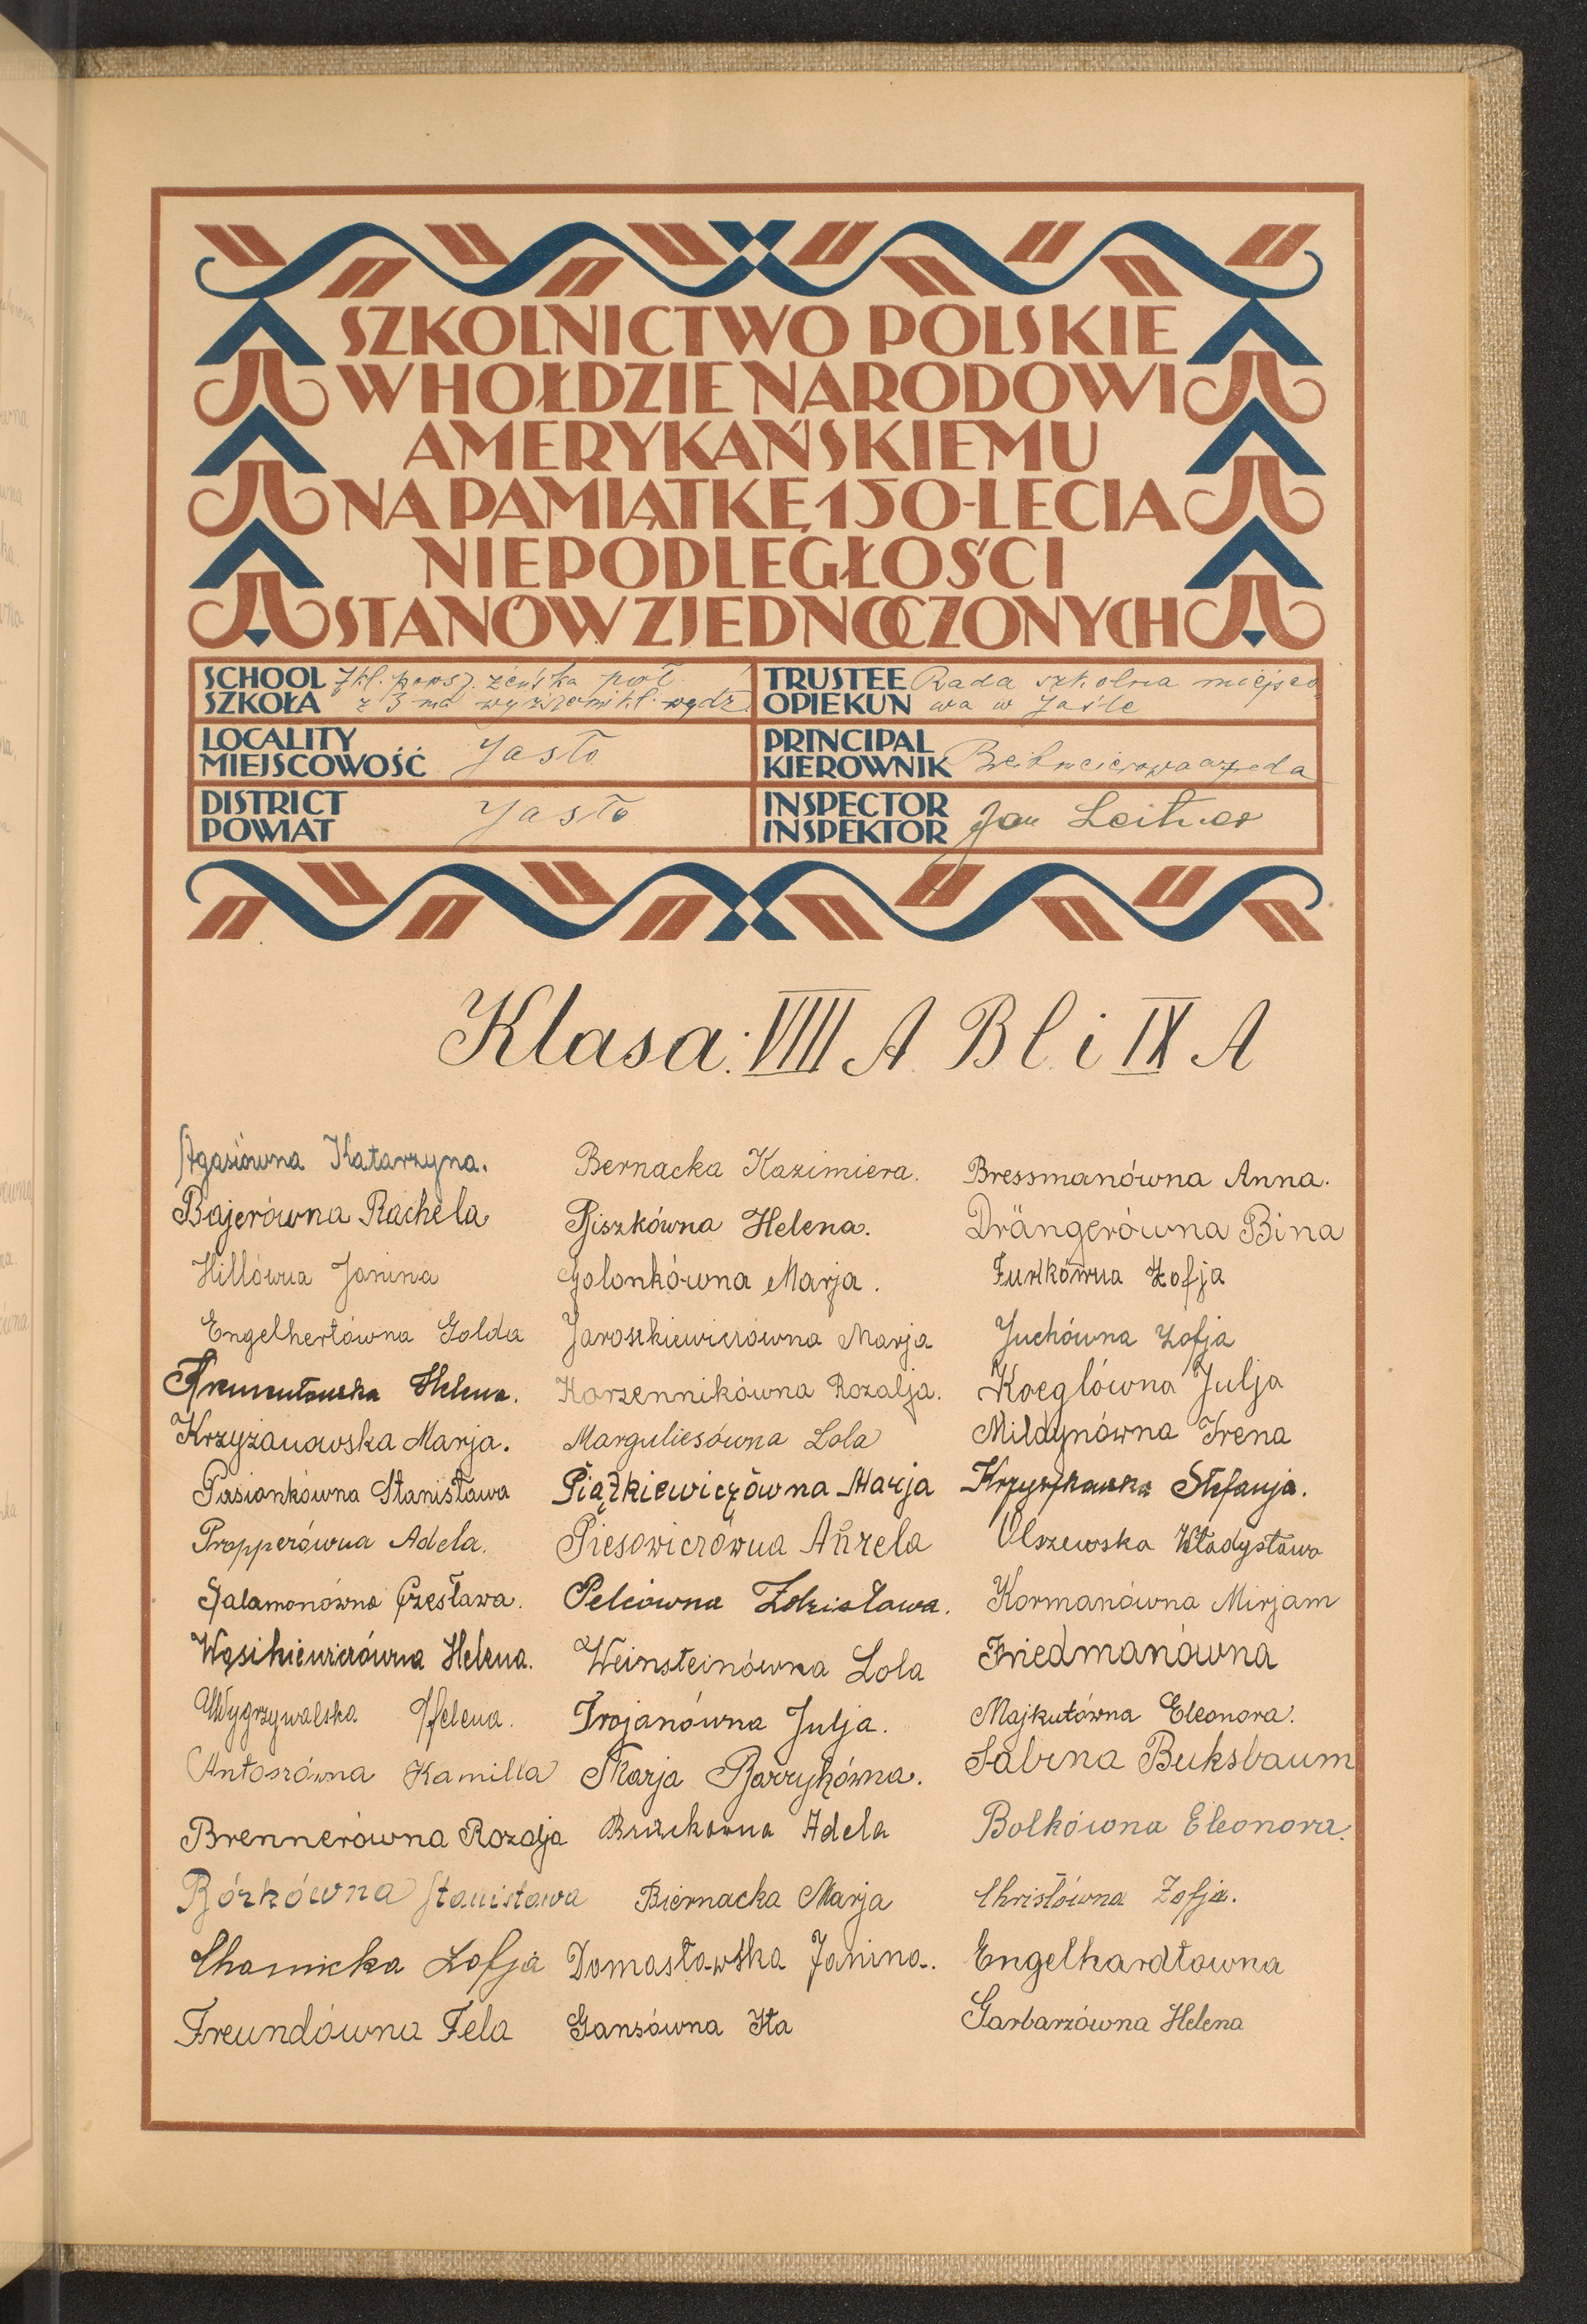 SZKOLNICTWO POLSKIE
W HOŁDZIE NARODOWI
AMERYKAŃSKIEMU
NA PAMIĄTKĘ 150-LECIA
NIEPODLEGŁOŚCI
STANÓW ZJEDNOCZONYCH
SCHOOL 7 kl. powsz. żeńska poł.
SZKOŁA z 3-ma wyższemi kl. wydz.
TRUSTEE Rada szkolna miejsco
OPIEKUN wa w Jaśle
LOCALITY
MIEJSCOWOŚĆ Jasło
PRINCIPAL
KIEROWNIK
DISTRICT
POWIAT Jasło
INSPECTOR
INSPEKTOR Jan Leitner
Klasa: VIII A B C i IX A
Agasiówna Katarzyna. Bernacka Kazimiera. Bressmanówna Anna.
Bajerówna Rachela Fiszkówna Helena. Drängerówna Bina
Hillówna Janina Golonkówna Marja. Furkówna Zofja
Engelhertówna Golda Jaroszkiewiczówna Marja Juchówna Zofja
Helena. Korzennikówna Rozalja. Koeglówna Julja
Krzyżanowska Marja. Marguliesówna Lola Mildynówna Irena
Pasionkówna Stanisława Piątkiewiczówna Marja Krzyszkowska Stefanja.
Propperówna Adela. Piesowiczówna Aniela Olszewska Władysława
Salamonówna Czesława. Pelcówna Zdzisława. Kormanówna Mirjam
Wąsikiewiczówna Helena. Weinsteinówna Lola Friedmanówna
Wygrzywalska Helena. Trojanówna Julja. Majkutówna Eleonora.
Antoszówna Kamilla Marja Barzykówna. Sabina Buksbaum
Brennerówna Rozalja Adela Bolkówna Eleonora.
Bórkówna Stanisława Biernacka Marja Christówna Zofja.
Chamicka Zofja Domasławska Janina. Engelhardtówna
Freundówna Fela Gansówna Ita Garbarzówna Helena